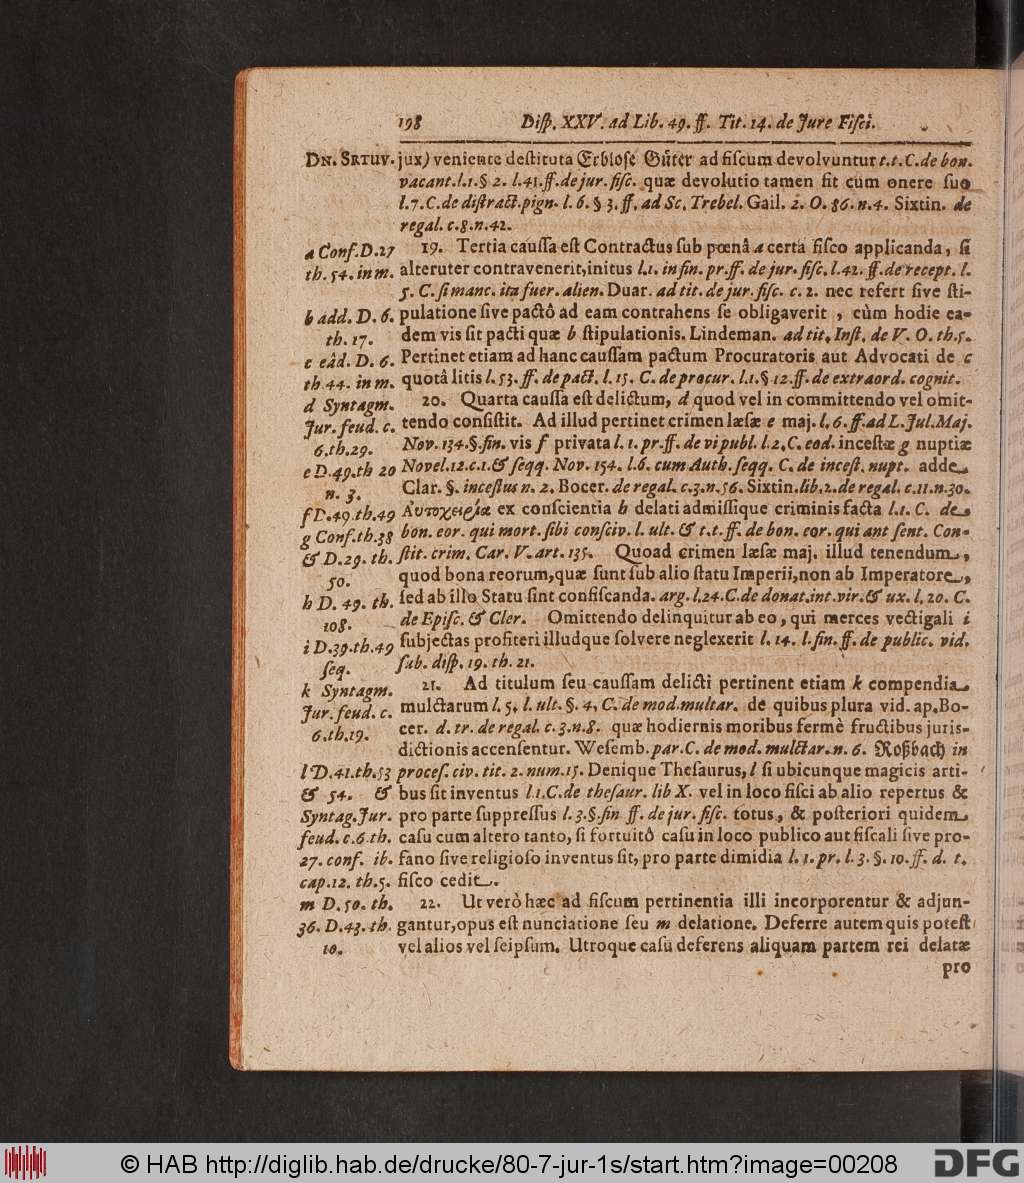 198 Diſp. XXV. ad Lib. 49. ff. Tit. 14. de Jure Fiſci.
Dn. Srtuv. jux) veniente deſtituta Erbloſe Güter ad fiſcum devolvuntur t.t.C.de bon.
vacant.l.1.§ 2. l.41.ff.de jur. fiſc. quæ devolutio tamen fit cum onere ſuo
l.7.C.de diſtract.pign. l. 6. § 3. ff. ad Sc. Trebel. Gail. 2. O. 86. n.4. Sixtin. de
regal. c.8.n.42.
19. Tertia cauſſa eſt Contractus ſub pœnâ a certa fiſco applicanda, ſi
alteruter contravenerit,initus l.1. in fin. pr.ff. de jur. fiſc. l.42. ff.de recept. l.
5. C. ſi manc. ita fuer. alien. Duar. ad tit. de jur. fiſc. c. 2. nec refert ſive ſti-
pulatione ſive pactô ad eam contrahens ſe obligaverit , cùm hodie ea-
dem vis ſit pacti quæ b ſtipulationis. Lindeman. ad tit. Inſt. de V. O. th.5.
Pertinet etiam ad hanc cauſſam pactum Procuratoris aut Advocati de c
quotâ litis l. 53. ff. de pact. l. 15. C. de procur. l.1.§ 12.ff. de extraord. cognit.
20. Quarta cauſſa eſt delictum, d quod vel in committendo vel omit-
tendo conſiſtit. Ad illud pertinet crimen læſæ e maj. l. 6. ff.ad L. Jul. Maj.
Nov. 134.§.fin. vis f privata l. 1. pr. ff. de vi publ. l.2.C. eod. inceſtæ g nuptiæ
Novel.12.c.1.& ſeqq. Nov. 154. l.6. cum Auth. ſeqq. C. de inceſt. nupt. adde
Clar. §. inceſtus n. 2. Bocer. de regal. c.3.n.56. Sixtin.lib.2.de regal. c.11.n.30.
Ἀυτοχειρία ex conſcientia h delati admiſſique criminis facta l.1. C. de
bon. eor. qui mort. ſibi conſciv. l. ult. & t.t. ff. de bon. eor. qui ant ſent. Con-
ſtit. crim. Car. V. art. 135. Quoad crimen læſæ maj. illud tenendum,
quod bona reorum,quæ ſunt ſub alio ſtatu Imperii,non ab Imperatore,
ſed ab illo Statu ſint confiſcanda. arg. l.24.C.de donat.int.vir.& ux. l. 20. C.
de Epiſc. & Cler. Omittendo delinquitur ab eo, qui merces vectigali i
ſubjectas profiteri illudque ſolvere neglexerit l. 14. l. fin. ff. de public. vid.
ſub. diſp. 19. th. 21.
21. Ad titulum ſeu cauſſam delicti pertinent etiam k compendia
mulctarum l. 5. l. ult. §. 4. C. de mod.multar. de quibus plura vid. ap. Bo-
cer. d. tr. de regal. c. 3.n.8. quæ hodiernis moribus fermè fructibus juris-
dictionis accenſentur. Weſemb. par. C. de mod. mulctar. n. 6. Roßbach in
proceſ. civ. tit. 2. num.15. Denique Theſaurus, l ſi ubicunque magicis arti-
bus ſit inventus l.1.C.de theſaur. lib X. vel in loco fiſci ab alio repertus &
pro parte ſuppreſſus l. 3.§.fin ff. de jur. fiſc. totus, & poſteriori quidem
caſu cum altero tanto, ſi fortuitô caſu in loco publico aut fiſcali ſive pro-
fano ſive religioſo inventus ſit, pro parte dimidia l. 1. pr. l. 3. §. 10. ff. d. t.
fiſco cedit.
22. Ut verò hæc ad fiſcum pertinentia illi incorporentur & adjun-
gantur,opus eſt nunciatione ſeu m delatione. Deferre autem quis poteſt
vel alios vel ſeipſum. Utroque caſu deferens aliquam partem rei delatæ
pro
a Conf. D.27
th. 54. in m.
b add. D. 6.
th. 17.
c eâd. D. 6.
th 44. in m.
d Syntagm.
Jur. feud. c.
6.th.29.
e D.49.th 20
n. 3.
f D.49.th.49
g Conf.th.38
& D.29. th.
50.
h D. 49. th.
108.
i D.39.th.49
ſeq.
k Syntagm.
Jur. feud. c.
6.th.19.
l D.41.th.53
& 54. &
Syntag.Jur.
feud. c.6.th.
27. conf. ib.
cap.12. th.5.
m D.50. th.
36. D.43. th.
10.
© HAB http://diglib.hab.de/drucke/80-7-jur-1s/start.htm?image=00208
DFG